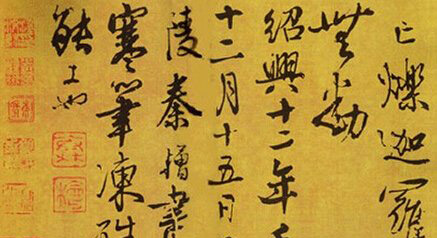 亡爍迦羅
無動
紹興十二年
十二月十五日
陵秦檜書
寒筆凍
能工也